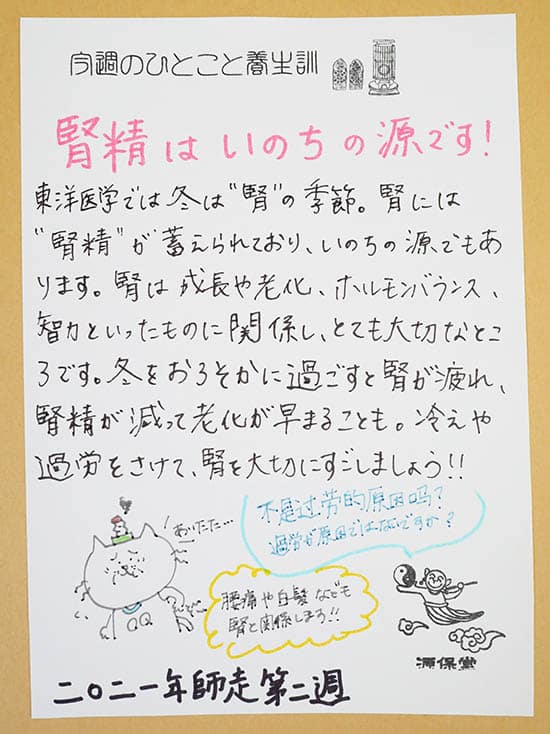 今週のひとこと養生訓
腎精はいのちの源です!
東洋医学では冬は"腎"の季節。腎には
"腎精"が蓄えられており、いのちの源でもあ
ります。腎は成長や老化、ホルモンバランス、
智力といったものに関係し、とても大切なとこ
ろです。冬をおろそかに過ごすと腎が疲れ、
腎精が減って老化が早まることも。冷えや
過労をさけて、腎を大切にすごしましょう!!
あいたた…
不是过劳的原因吗?
過労が原因ではないですか?
腰痛や白髪なども
腎と関係します!!
源保堂
二〇二一年師走第二週